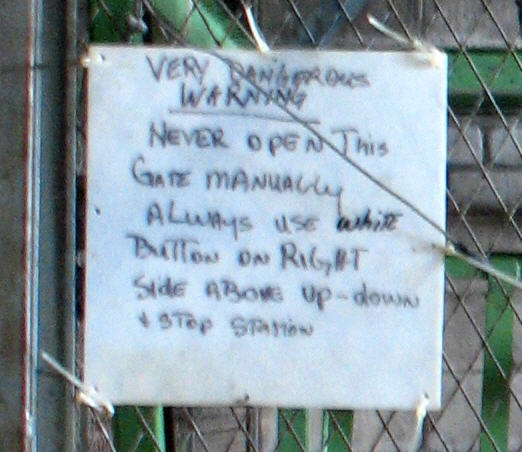 VERY DANGEROUS
WARNING
NEVER OPEN This
GATE MANUALLY
ALWAYS USE white
BUTTON ON RIGHT
SIDE ABOVE UP-DOWN
+ STOP STATION